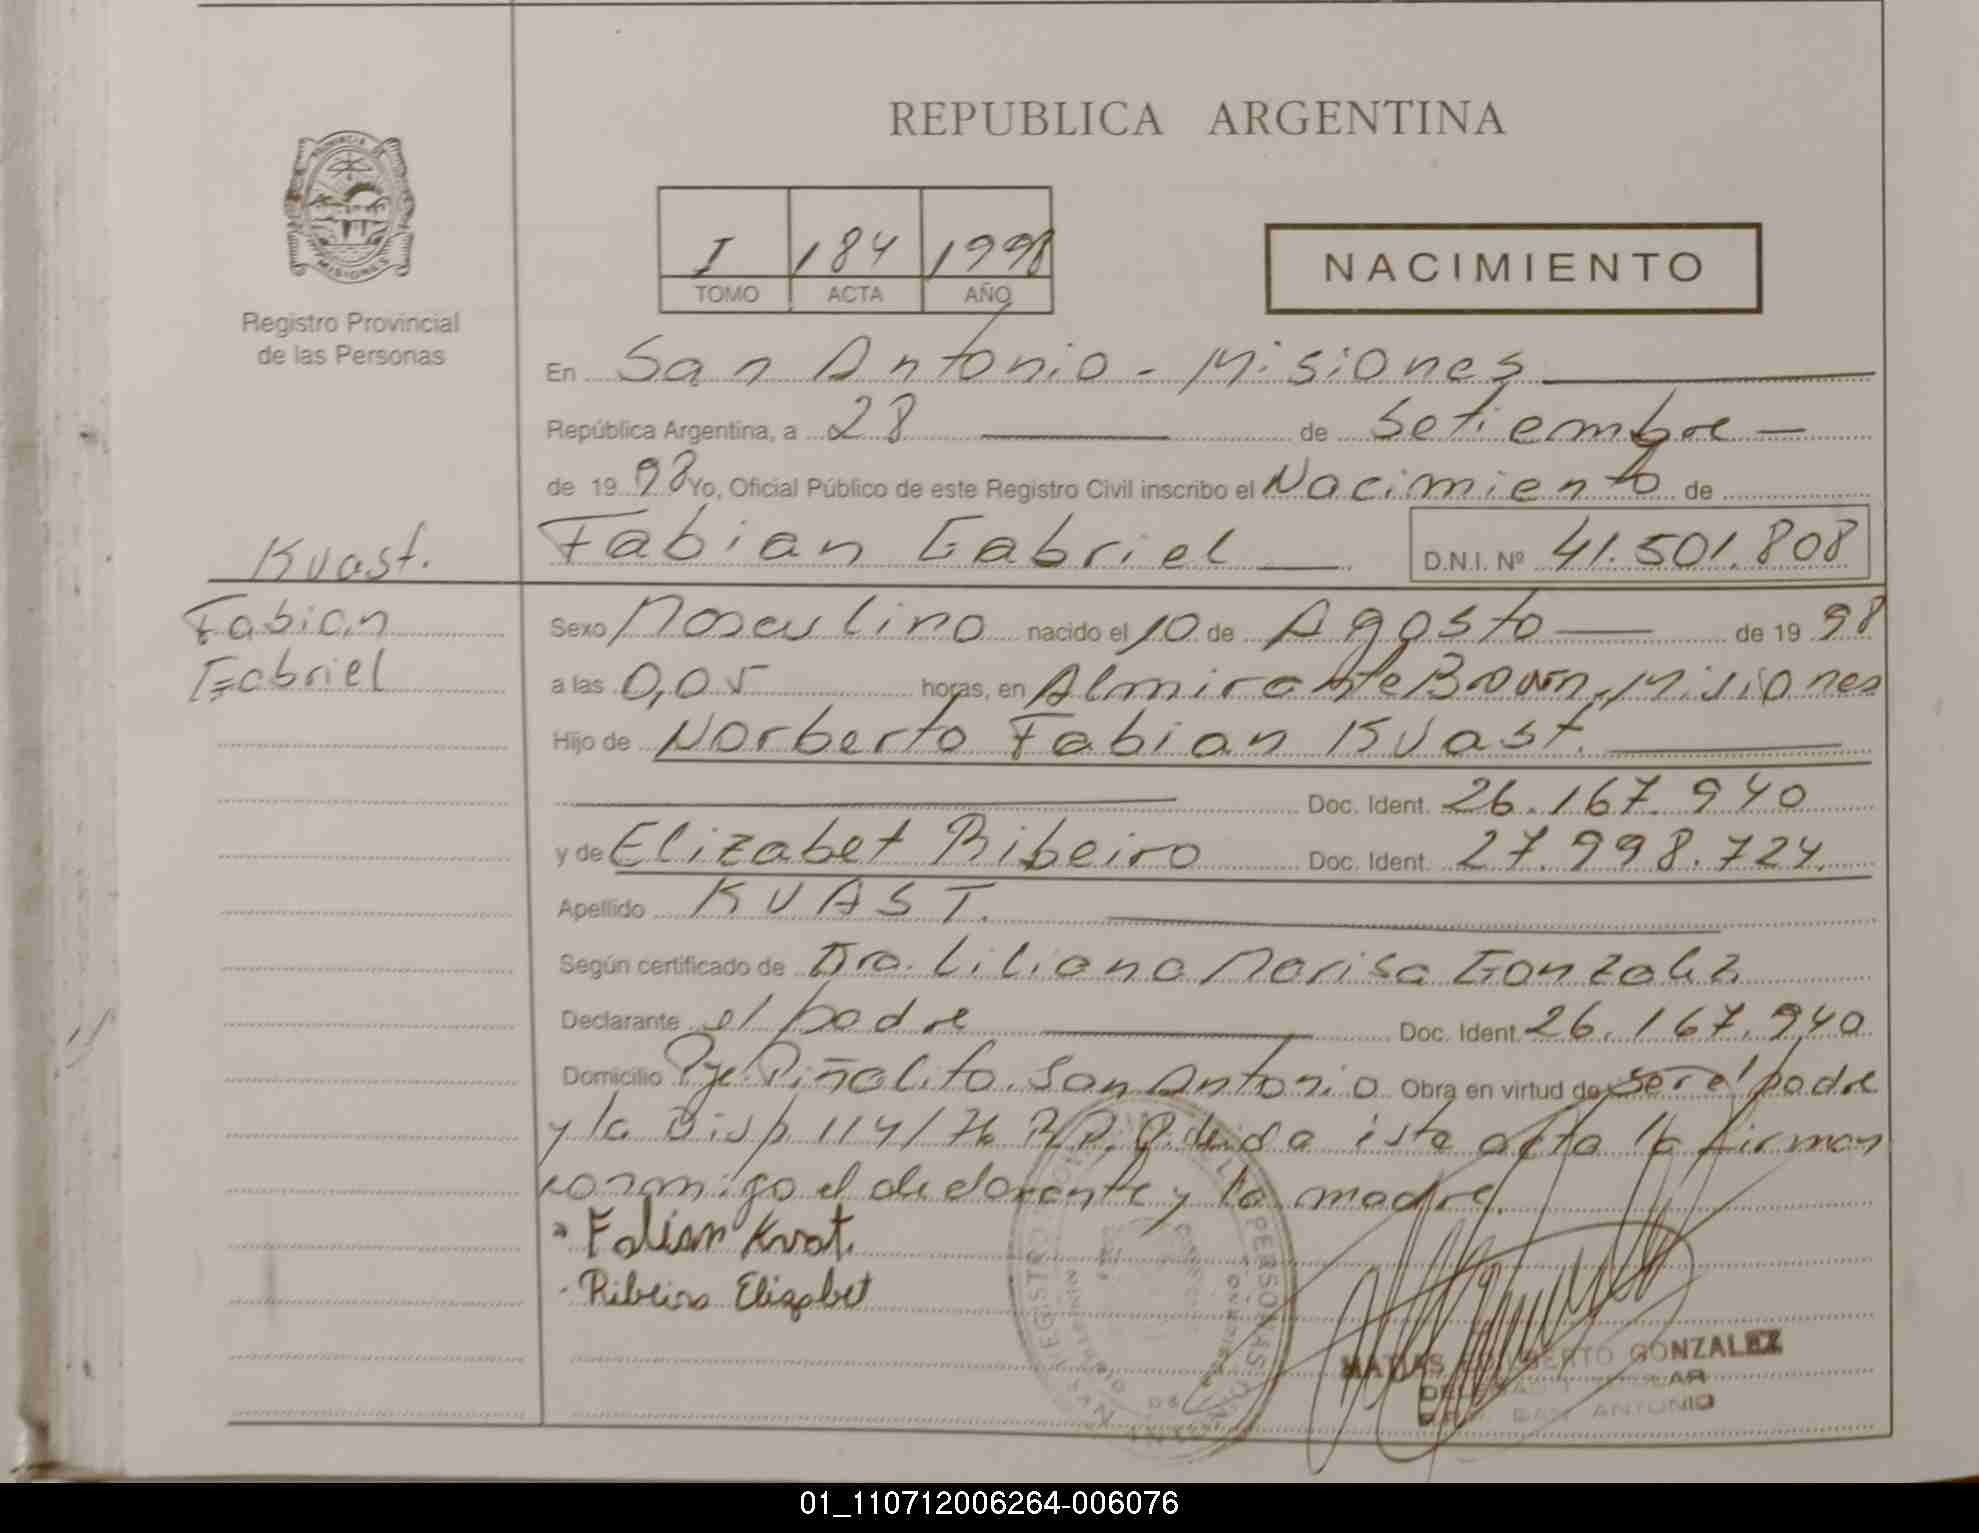 REPUBLICA ARGENTINA
PROVINCIA DE
MISIONES
Registro Provincial
de las Personas
I 184 1998
TOMO ACTA AÑO
NACIMIENTO
En San Antonio - Misiones
República Argentina, a 28 de Setiembre
de 19 98 Yo, Oficial Público de este Registro Civil inscribo el Nacimiento de
Kvast.
Fabian Gabriel D.N.I. Nº 41.501.808
Fabian
Gabriel
Sexo Masculino nacido el 10 de Agosto de 19 98
a las 0,05 horas, en Almirante Brown, Misiones
Hijo de Norberto Fabian Kvast.
Doc. Ident. 26.167.940
y de Elizabet Ribeiro Doc. Ident. 27.998.724.
Apellido KVAST.
Según certificado de Dra. Liliana Marisa Gonzalez
Declarante el padre Doc. Ident. 26.167.940
Domicilio Pje Piñalito. San Antonio Obra en virtud de ser el padre
y la Disp 114/76 R.P.P. leida este acta la firman
conmigo el declarante y la madre.
Fabian Kvast.
Ribeiro Elizabet
GONZALEZ
SAN ANTONIO
01_110712006264-006076